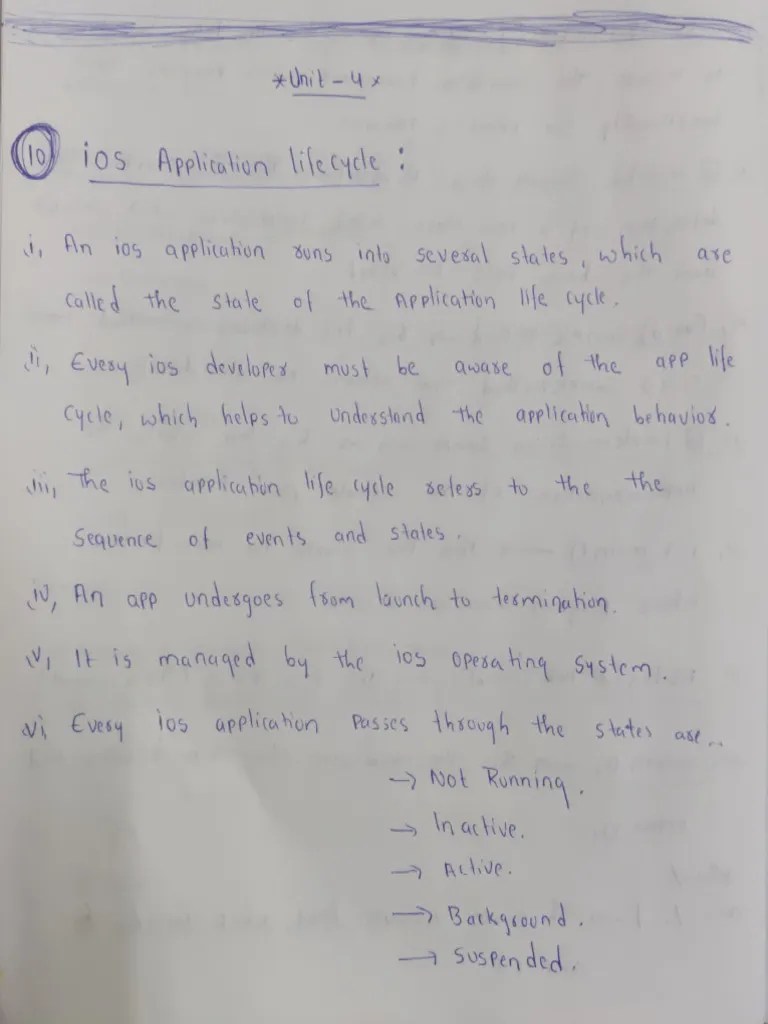 *Unit-4*
10 ios Application lifecycle :
i, An ios application runs into several states, which are
called the state of the Application life cycle.
ii, Every ios developer must be aware of the app life
cycle, which helps to understand the application behavior.
iii, The ios application life cycle refers to the the
Sequence of events and states.
iv, An app undergoes from launch to termination.
v, It is managed by the ios operating system.
vi, Every ios application passes through the states are..
→ Not Running.
→ Inactive.
→ Active.
→ Background.
→ Suspended.